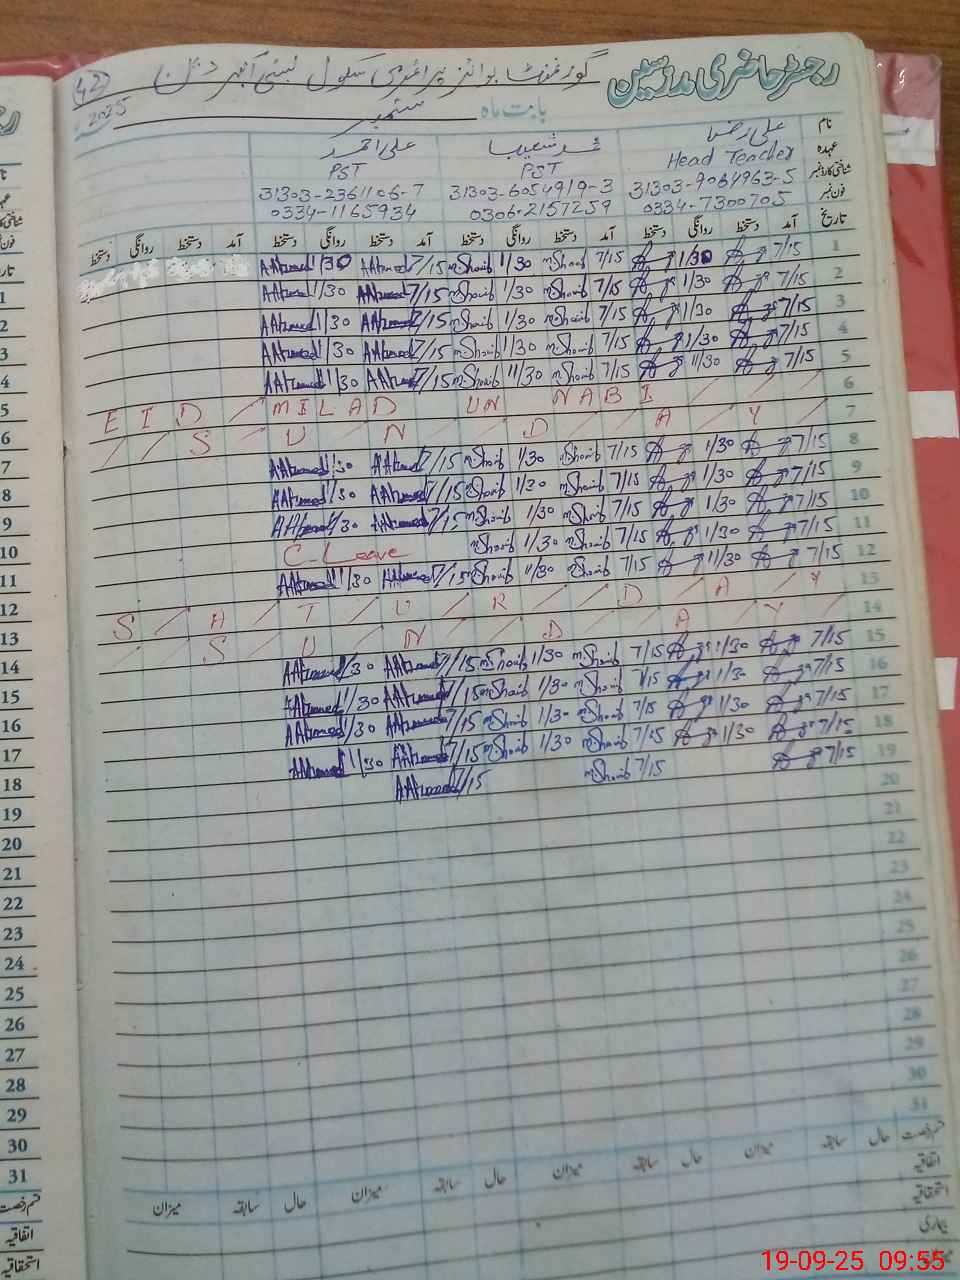 رجسٹر حاضری مدرسین گورنمنٹ بوائز پرائمری سکول
42
بابت ماہ ستمبر 2025
نام علی رضا محمد شعیب علی احمد
عہدہ Head Teacher PST PST
شناختی کارڈ نمبر 31303-9064963-5 31303-6054919-3 31303-2361106-7
فون نمبر 0334-7300705 0306-2157259 0334-1165934
تاریخ آمد دستخط روانگی دستخط آمد دستخط روانگی دستخط آمد دستخط روانگی دستخط آمد دستخط روانگی دستخط
1 7/15 1/30 7/15 M.Shoaib 1/30 M.Shoaib 7/15 AAhmed 1/30 AAhmed
2 7/15 1/30 7/15 M.Shoaib 1/30 M.Shoaib 7/15 AAhmed 1/30 AAhmed
3 7/15 1/30 7/15 M.Shoaib 1/30 M.Shoaib 7/15 AAhmed 1/30 AAhmed
4 7/15 1/30 7/15 M.Shoaib 1/30 M.Shoaib 7/15 AAhmed 1/30 AAhmed
5 7/15 11/30 7/15 M.Shoaib 11/30 M.Shoaib 7/15 AAhmed 11/30 AAhmed
6 EID MILAD UN NABI
7 SUNDAY
8 7/15 1/30 7/15 M.Shoaib 1/30 M.Shoaib 7/15 AAhmed 1/30 AAhmed
9 7/15 1/30 7/15 M.Shoaib 1/30 M.Shoaib 7/15 AAhmed 1/30 AAhmed
10 7/15 1/30 7/15 M.Shoaib 1/30 M.Shoaib 7/15 AAhmed 1/30 AAhmed
11 7/15 1/30 7/15 M.Shoaib 1/30 M.Shoaib C-Leave
12 7/15 11/30 7/15 M.Shoaib 11/30 M.Shoaib 7/15 AAhmed 11/30 AAhmed
13 SATURDAY
14 SUNDAY
15 7/15 1/30 7/15 M.Shoaib 1/30 M.Shoaib 7/15 AAhmed 1/30 AAhmed
16 7/15 1/30 7/15 M.Shoaib 1/30 M.Shoaib 7/15 AAhmed 1/30 AAhmed
17 7/15 1/30 7/15 M.Shoaib 1/30 M.Shoaib 7/15 AAhmed 1/30 AAhmed
18 7/15 1/30 7/15 M.Shoaib 1/30 M.Shoaib 7/15 AAhmed 1/30 AAhmed
19 7/15 7/15 M.Shoaib 7/15 AAhmed
20
21
22
23
24
25
26
27
28
29
30
31
قسم رخصت حال سابقہ میزان حال سابقہ میزان حال سابقہ میزان حال سابقہ میزان
اتفاقیہ
استحقاقیہ
بیماری
1
2
3
4
5
6
7
8
9
10
11
12
13
14
15
16
17
18
19
20
21
22
23
24
25
26
27
28
29
30
31
قسم رخصت
اتفاقیہ
استحقاقیہ
19-09-25 09:55